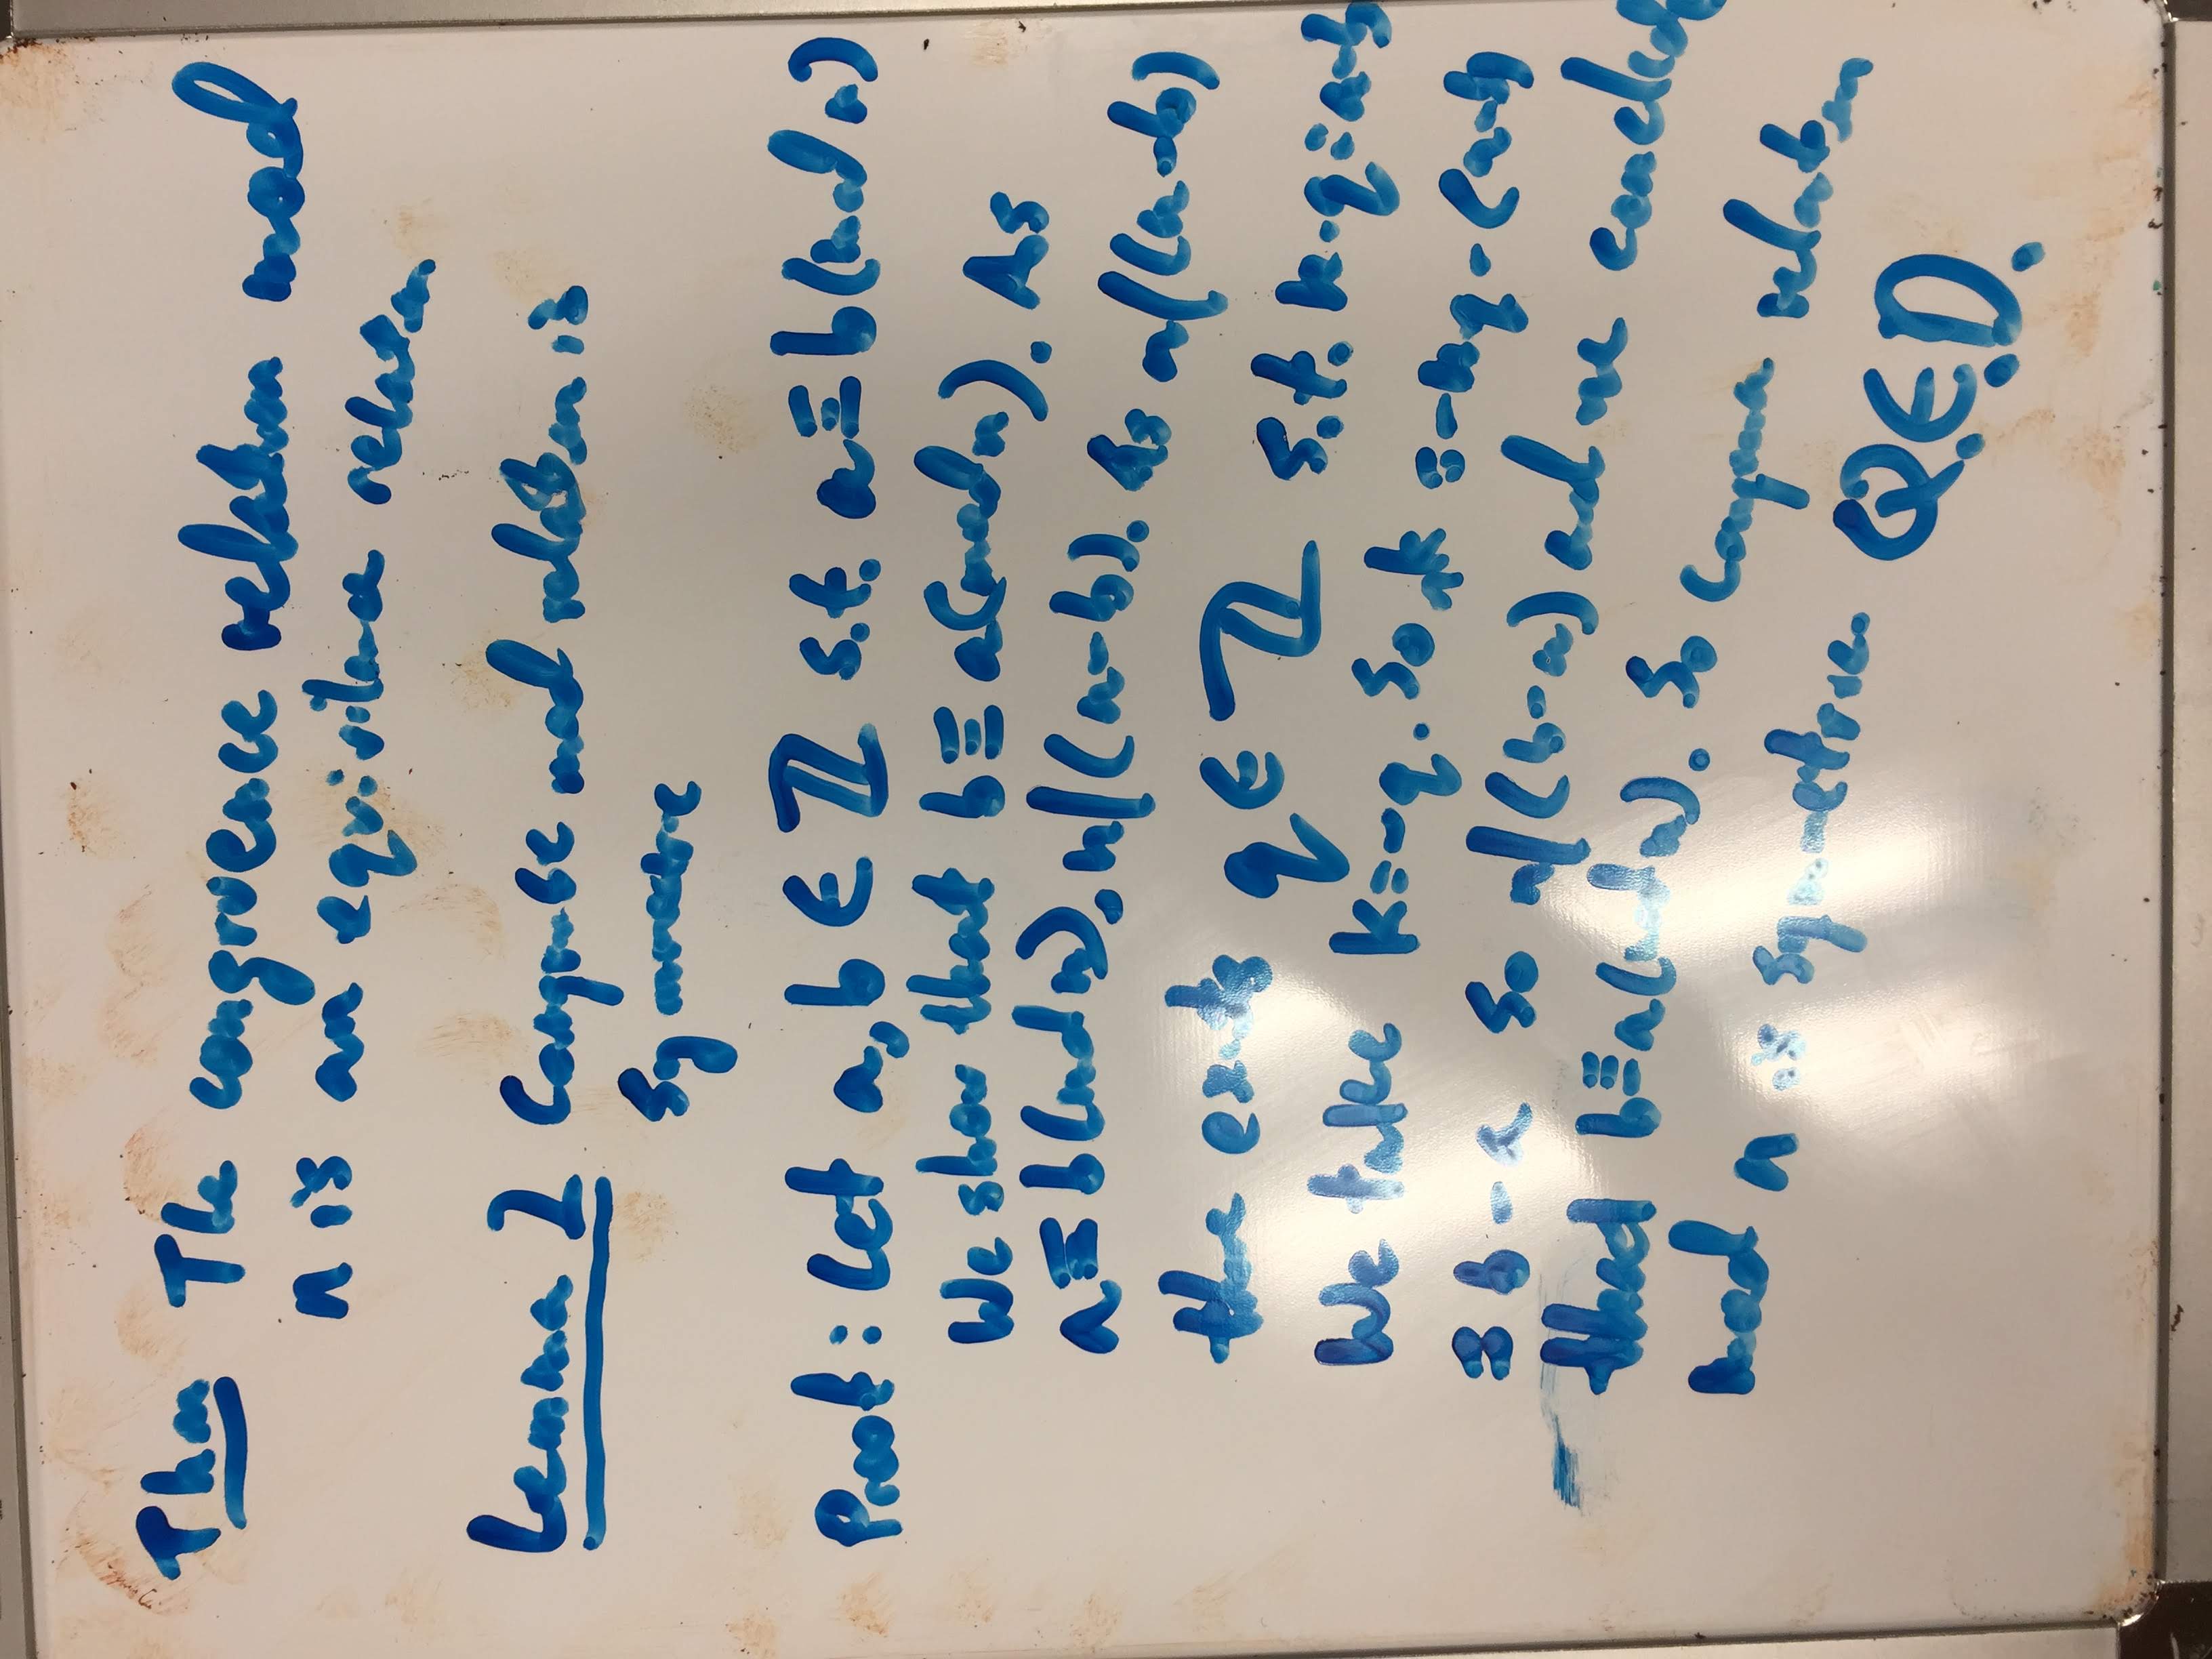 Thm The congruence relation mod
n is an equivilance relation
Lemma 2 Congruence mod relation is
Symmetric
Proof: Let a, b ∈ ℤ s.t. a ≡ b (mod n)
We show that b ≡ a (mod n). As
a ≡ b (mod n), n | (a-b). As n | (a-b)
the exists q ∈ ℤ s.t. n·q = a-b
We take k = -q. So nk = -nq - (a-b)
= b - a So n | (b-a) and we conclude
that b ≡ a (mod n). So congruence relation
mod n is symmetric.
Q.E.D.